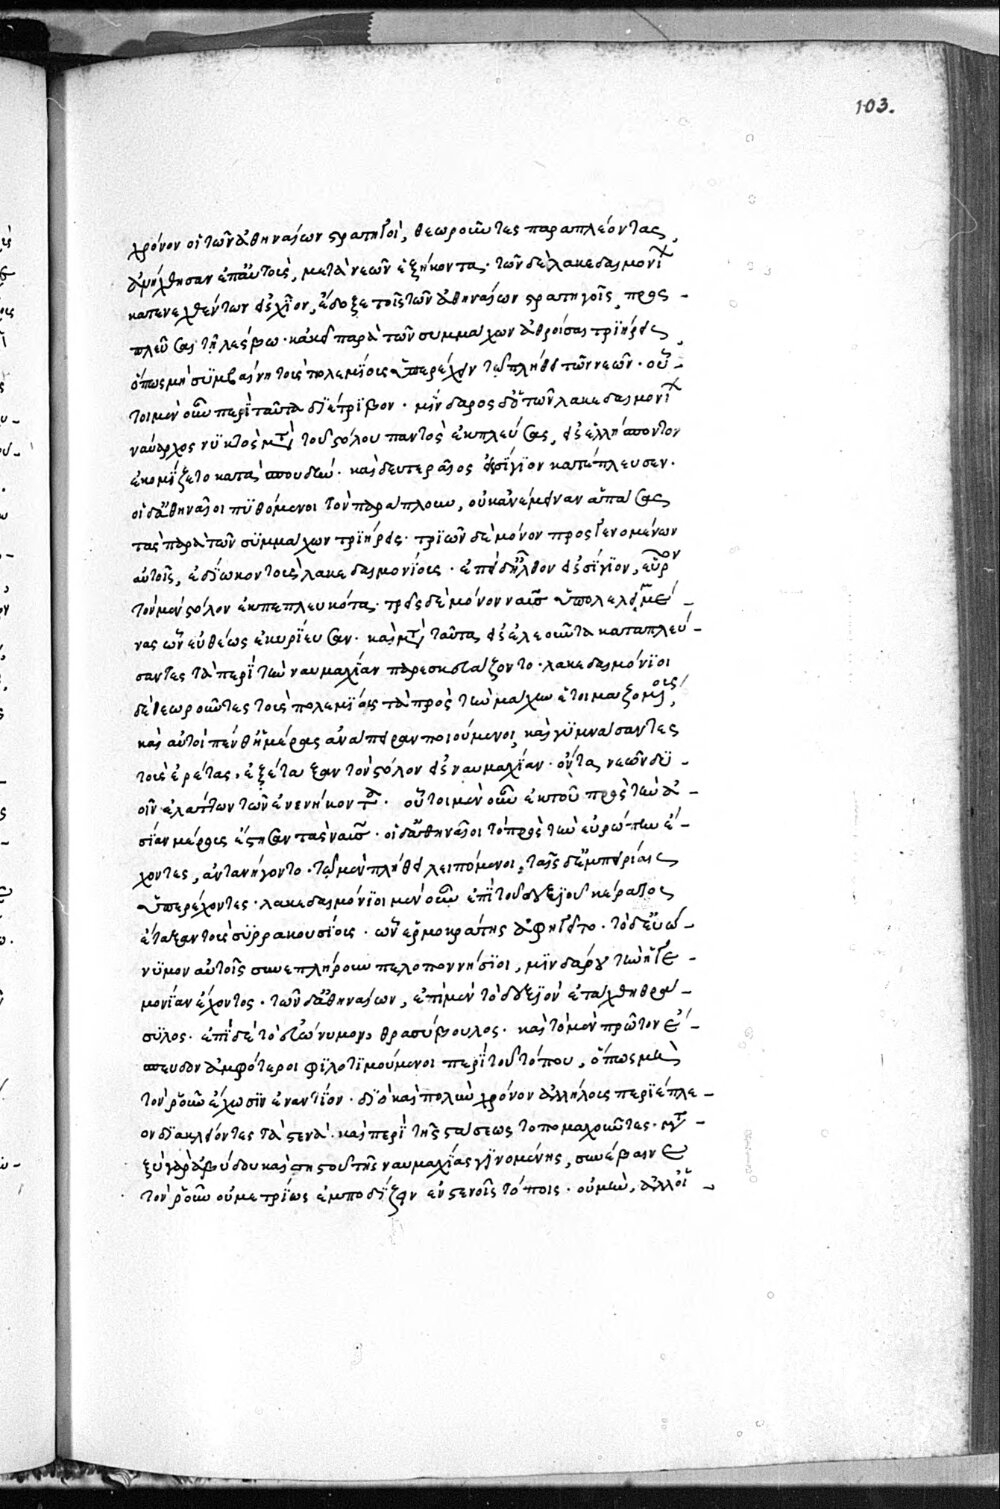 103.
χρόνον οἱ τῶν ἀθηναίων στρατηγοὶ, θεωροῦντες παραπλέοντας,
ἀνήχθησαν ἐπ' αὐτοὺς, μετὰ νεῶν ἑξήκοντα. τῶν δὲ λακεδαιμονί
κατενεχθέντων εἰς χίον, ἔδοξε τοῖς τῶν ἀθηναίων στρατηγοῖς, προσ-
πλεῦσαι τῇ λέσβω. κἀκεῖ παρὰ τῶν συμμάχων ἀθροίσαι τριήρεις,
ὅπως μὴ συμβαίνη τοὺς πολεμίους ὑπερέχειν τῶ πλήθει τῶν νεῶν. οὗ-
τοι μὲν οὖν περὶ ταῦτα διέτριβον. μίνδαρος δ' ὁ τῶν λακεδαιμονί
ναύαρχος νυκτὸς μετὰ τοῦ στόλου παντὸς ἐκπλεύσας, εἰς ἑλλήσποντον
ἐκομίζετο κατὰ σπουδὴν. καὶ δευτεραῖος εἰς σίγιον κατέπλευσεν.
οἱ δ' ἀθηναῖοι πυθόμενοι τὸν παράπλουν, οὐκ ἀνέμειναν ἁπάσας
τὰς παρὰ τῶν συμμάχων τριήρεις. τριῶν δὲ μόνον προσγενομένων
αὐτοῖς, ἐδίωκον τοὺς λακεδαιμονίους. ἐπεὶ δ' ἦλθον εἰς σίγιον, εὗρον
τὸν μὲν στόλον ἐκπεπλευκότα. τρεῖς δὲ μόνον ναῦς ὑπολελειμμέ-
νας ὧν εὐθέως ἐκυρίευσαν. καὶ μετὰ ταῦτα εἰς ἐλεοῦντα καταπλεύ-
σαντες τὰ περὶ τὴν ναυμαχίαν παρεσκευάζοντο. λακεδαιμόνιοι
δὲ θεωροῦντες τοὺς πολεμίους τὰ πρὸς τὴν μάχην ἑτοιμαζομένους,
καὶ αὐτοὶ πένθ' ἡμέρας ἀνάπειραν ποιούμενοι, καὶ γυμνάσαντες
τοὺς ἐρέτας, ἐξέταξαν τὸν στόλον εἰς ναυμαχίαν. ὄντα νεῶν δυ-
οῖν ἐλαττων τῶν ἐνενήκοντα. οὗτοι μὲν οὖν ἐκ τοῦ πρὸς τὴν ἀ-
σίαν μέρους ἔστησαν τὰς ναῦς. οἱ δ' ἀθηναῖοι τὸ πρὸς τὴν εὐρώπην ἔ-
χοντες, ἀντανήγοντο. τῶ μὲν πλήθει λειπόμενοι, ταῖς δ' ἐμπειρίαις
ὑπερέχοντες. λακεδαιμόνιοι μὲν οὖν ἐπὶ τοῦ δεξιοῦ κέρατος
ἔταξαν τοὺς συρρακουσίους. ὧν ἑρμοκράτης ἀφηγεῖτο. τὸ δ' εὐώ-
νυμον αὐτοὶς συνεπλήρουν πελοποννήσιοι, μινδάρου τὴν ἡγε-
μονίαν ἔχοντος. τῶν δ' ἀθηναίων, ἐπὶ μὲν τὸ δεξιὸν ἐτάχθη θρα-
σύλος. ἐπὶ δὲ τὸ εὐώνυμον, θρασύβουλος. καὶ τὸ μὲν πρῶτον ἔ-
σπευδον ἀμφότεροι φιλοτιμούμενοι περὶ τοῦ τόπου, ὅπως μὴ
τὸν ῥοῦν ἔχωσιν ἐναντίον. διὸ καὶ πολὺν χρόνον ἀλλήλους περιέπλε-
ον διακλείοντες τὰ στενὰ. καὶ περὶ τῆς στάσεως τοπομαχοῦντες. μετ-
ξὺ γὰρ ἀβύδου καὶ σηστοῦ τῆς ναυμαχίας γινομένης, συνέβαινε
τὸν ῥοῦν οὐ μετρίως ἐμποδίζειν ἐν στενοῖς τόποις. οὐ μὴν, ἀλλ' οἱ